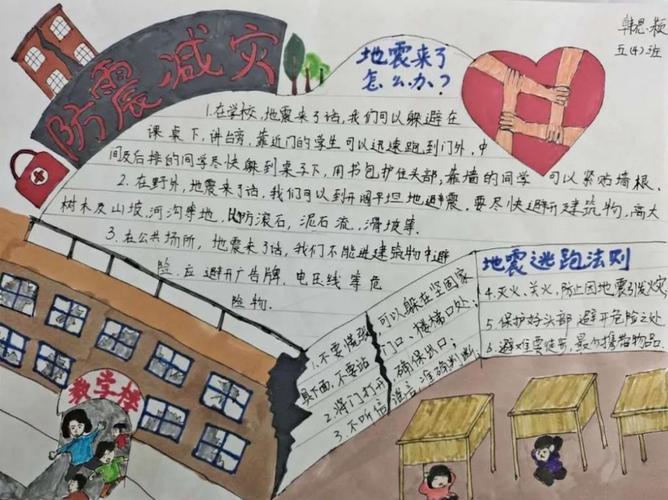 防震减灾
地震来了
怎么办？
五(4)班
1.在学校，地震来了话，我们可以躲避在
课桌下，讲台旁，靠近门的学生可以迅速跑到门外，中
间及后排的同学尽快躲到桌子下，用书包护住头部；靠墙的同学可以紧贴墙根，
2.在野外，地震来了话，我们可以到开阔平坦地避震。要尽快避开建筑物，高大
树木及山坡，河沟等地，以防滚石，泥石流，滑坡等。
3.在公共场所，地震来了话，我们不能进建筑物中避
险，应避开广告牌，电压线等危
险物。
地震逃跑法则
1.不要慌张 可以躲在坚固家
具下面，不要站 门口、楼梯口处；
2.将门打开 确保出口；
3.不听信 谣言
4.灭火、关火，防止因地震引发火灾
5.保护好头部 避开危险之处
6.避难要徒步，最少携带物品。
教学楼